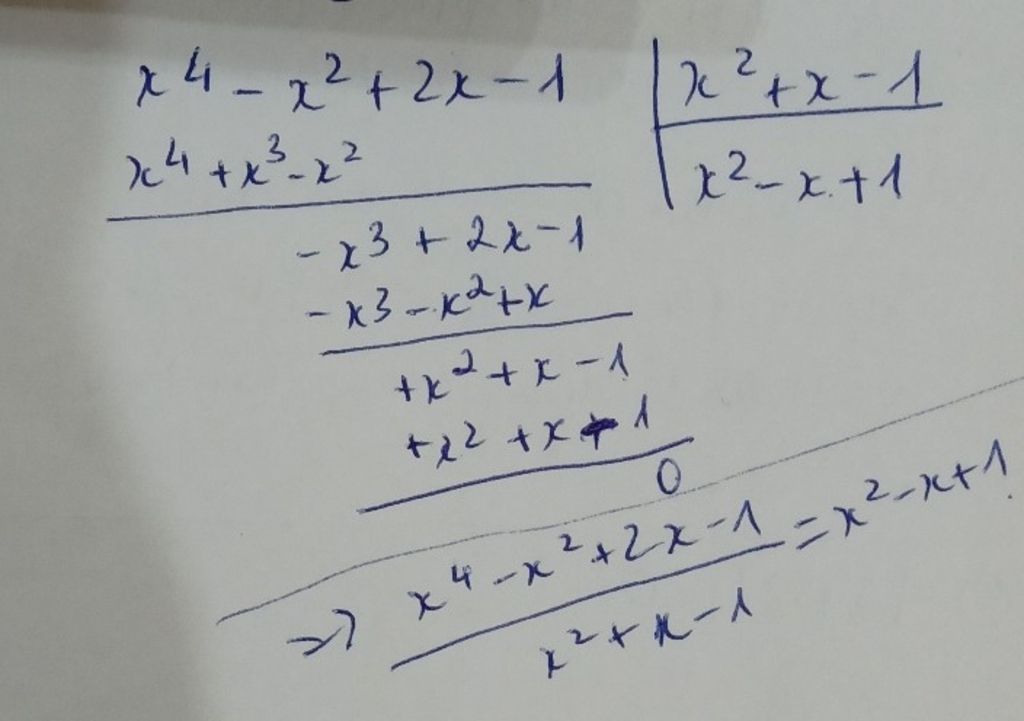 x⁴ - x² + 2x - 1 | x² + x - 1
x⁴ + x³ - x² | x² - x + 1
- x³ + 2x - 1
- x³ - x² + x
+ x² + x - 1
+ x² + x - 1
0
=> (x⁴ - x² + 2x - 1) / (x² + x - 1) = x² - x + 1